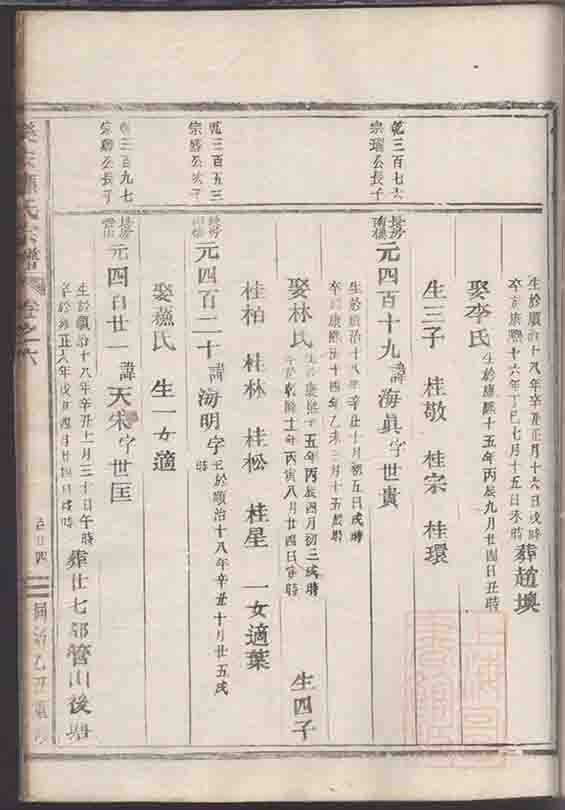 生於順治十八年辛丑正月十六日戌時
卒於康熙十六年丁巳七月十五日未時
葬趙墺
娶李氏
生於康熙十五年丙辰九月廿四日丑時
生三子 桂敬 桂宗 桂環
乾三百七六
宗瑞公長子
元四百十九 諱海眞字世貴
生於順治十八年辛丑十月初五日戌時
卒於康熙五十四年乙未三月十五辰時
娶林氏
生於康熙十五年丙辰四月初三戌時
卒於乾隆十一年丙寅八月廿四日寅時
生四子
桂柏 桂林 桂松 桂星 一女適葉
乾三百五三
宗勝公次子
元四百二十 諱海明字
生於順治十八年辛丑十月廿五戌時
娶燕氏 生一女適
乾三百九七
宗聯公長子
元四百廿一 諱天宋字世匡
生於順治十八年辛丑十一月三十日午時
卒於雍正六年戊申四月廿四日戌時
葬仕七都管山後塘
氏宗譜 卷之六
百廿四
同治乙丑